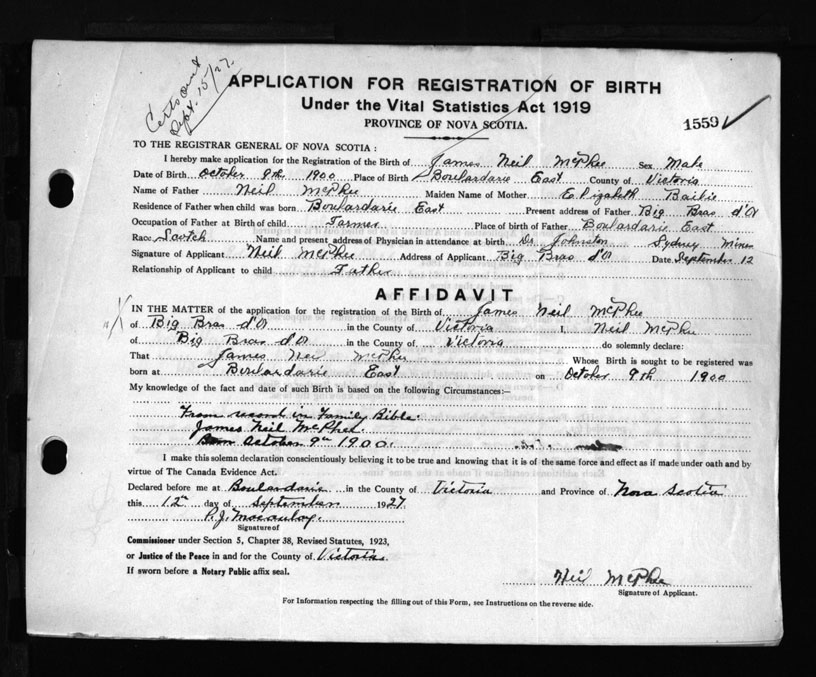 Certs out
Sept. 15/27.
APPLICATION FOR REGISTRATION OF BIRTH
Under the Vital Statistics Act 1919
PROVINCE OF NOVA SCOTIA.
1559
TO THE REGISTRAR GENERAL OF NOVA SCOTIA :
I hereby make application for the Registration of the Birth of James Neil McPhee Sex Male
Date of Birth October 9th 1900 Place of Birth Boulardarie East County of Victoria
Name of Father Neil McPhee Maiden Name of Mother Elizabeth Baikie
Residence of Father when child was born Boulardarie East Present address of Father Big Bras d'Or
Occupation of Father at Birth of child Farmer Place of birth of Father Boulardarie East
Race Scotch Name and present address of Physician in attendance at birth Dr Johnston Sydney Mines
Signature of Applicant Neil McPhee Address of Applicant Big Bras d'Or Date September 12
Relationship of Applicant to child Father
AFFIDAVIT
IN THE MATTER of the application for the registration of the Birth of James Neil McPhee
of Big Bras d'Or in the County of Victoria I, Neil McPhee
of Big Bras d'Or in the County of Victoria do solemnly declare:
That James Neil McPhee Whose Birth is sought to be registered was
born at Boulardarie East on October 9th 1900
My knowledge of the fact and date of such Birth is based on the following Circumstances:—
From record in Family Bible.
James Neil McPhee
Born October 9th 1900.
I make this solemn declaration conscientiously believing it to be true and knowing that it is of the same force and effect as if made under oath and by
virtue of The Canada Evidence Act.
Declared before me at Boulardarie in the County of Victoria and Province of Nova Scotia
this 12th day of September 1927
P.J. Macaulay.
Signature of
Commissioner under Section 5, Chapter 38, Revised Statutes, 1923,
or Justice of the Peace in and for the County of Victoria
If sworn before a Notary Public affix seal.
Neil McPhee
Signature of Applicant.
For Information respecting the filling out of this Form, see Instructions on the reverse side.